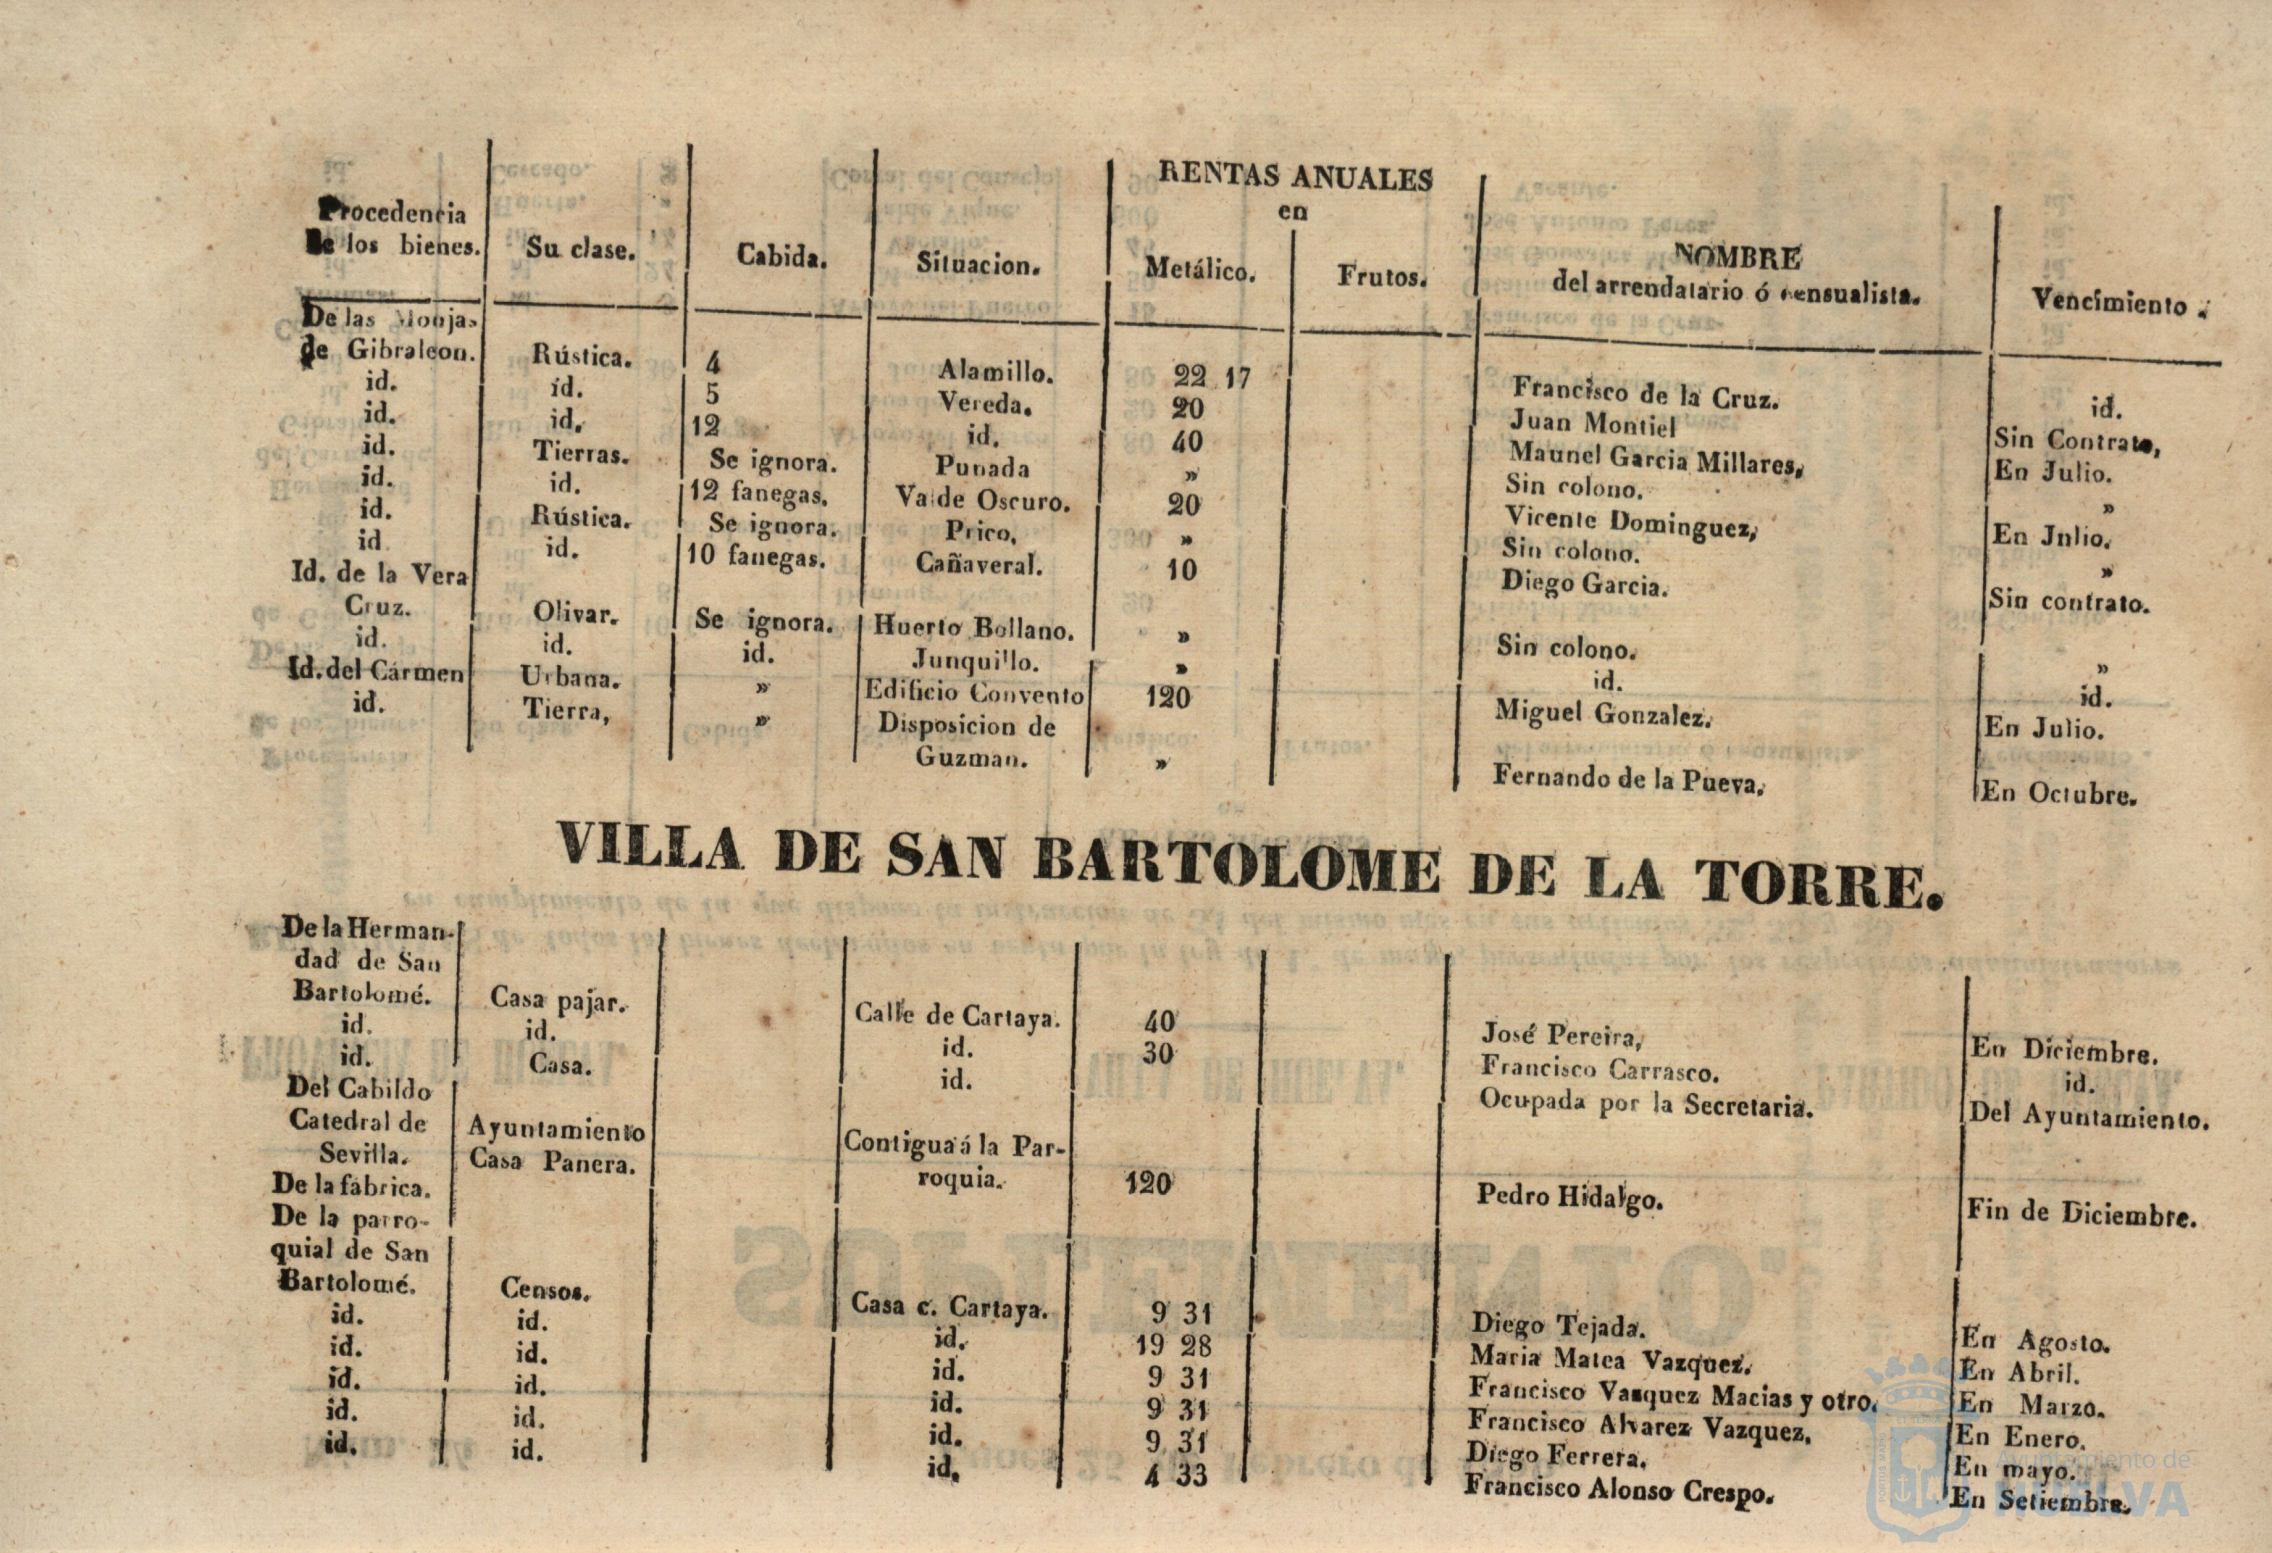 RENTAS ANUALES
en
Procedencia
de los bienes. Su clase. Cabida. Situacion. Metálico. Frutos. NOMBRE
del arrendatario ó censualista. Vencimiento.
De las Monjas
de Gibraleon. Rústica. 4 Alamillo. 22 17 Francisco de la Cruz. id.
id. id. 5 Vereda. 20 Juan Montiel Sin Contrato,
id. id. 12 id. 40 Maunel Garcia Millares, En Julio.
id. Tierras. Se ignora. Punada » Sin colono. »
id. id. 12 fanegas. Valde Oscuro. 20 Vicente Dominguez, En Jnlio.
id. Rústica. Se ignora. Prico, » Sin colono. »
id id. 10 fanegas. Cañaveral. 10 Diego Garcia. Sin contrato.
Id. de la Vera
Cruz. Olivar. Se ignora. Huerto Bollano. » Sin colono. »
id. id. id. Junquillo. » id. id.
Id. del Cármen Urbana. » Edificio Convento 120 Miguel Gonzalez. En Julio.
id. Tierra, » Disposicion de
Guzman. » Fernando de la Pueva. En Octubre.
VILLA DE SAN BARTOLOME DE LA TORRE.
De la Herman-
dad de San
Bartolomé. Casa pajar. Calle de Cartaya. 40 José Pereira, En Diciembre.
id. id. id. 30 Francisco Carrasco. id.
id. Casa. id. Ocupada por la Secretaria. Del Ayuntamiento.
Del Cabildo
Catedral de Ayuntamiento Contigua á la Par-
Sevilla. Casa Panera. roquia. 120 Pedro Hidalgo. Fin de Diciembre.
De la fábrica.
De la parro-
quial de San
Bartolomé. Censos. Casa c. Cartaya. 9 31 Diego Tejada. En Agosto.
id. id. id. 19 28 Maria Matea Vazquez. En Abril.
id. id. id. 9 31 Francisco Vazquez Macias y otro. En Marzo.
id. id. id. 9 31 Francisco Alvarez Vazquez. En Enero.
id. id. id. 9 31 Diego Ferrera. En mayo.
id. id. id. 4 33 Francisco Alonso Crespo. En Setiembre.
Ayuntamiento de
HUELVA